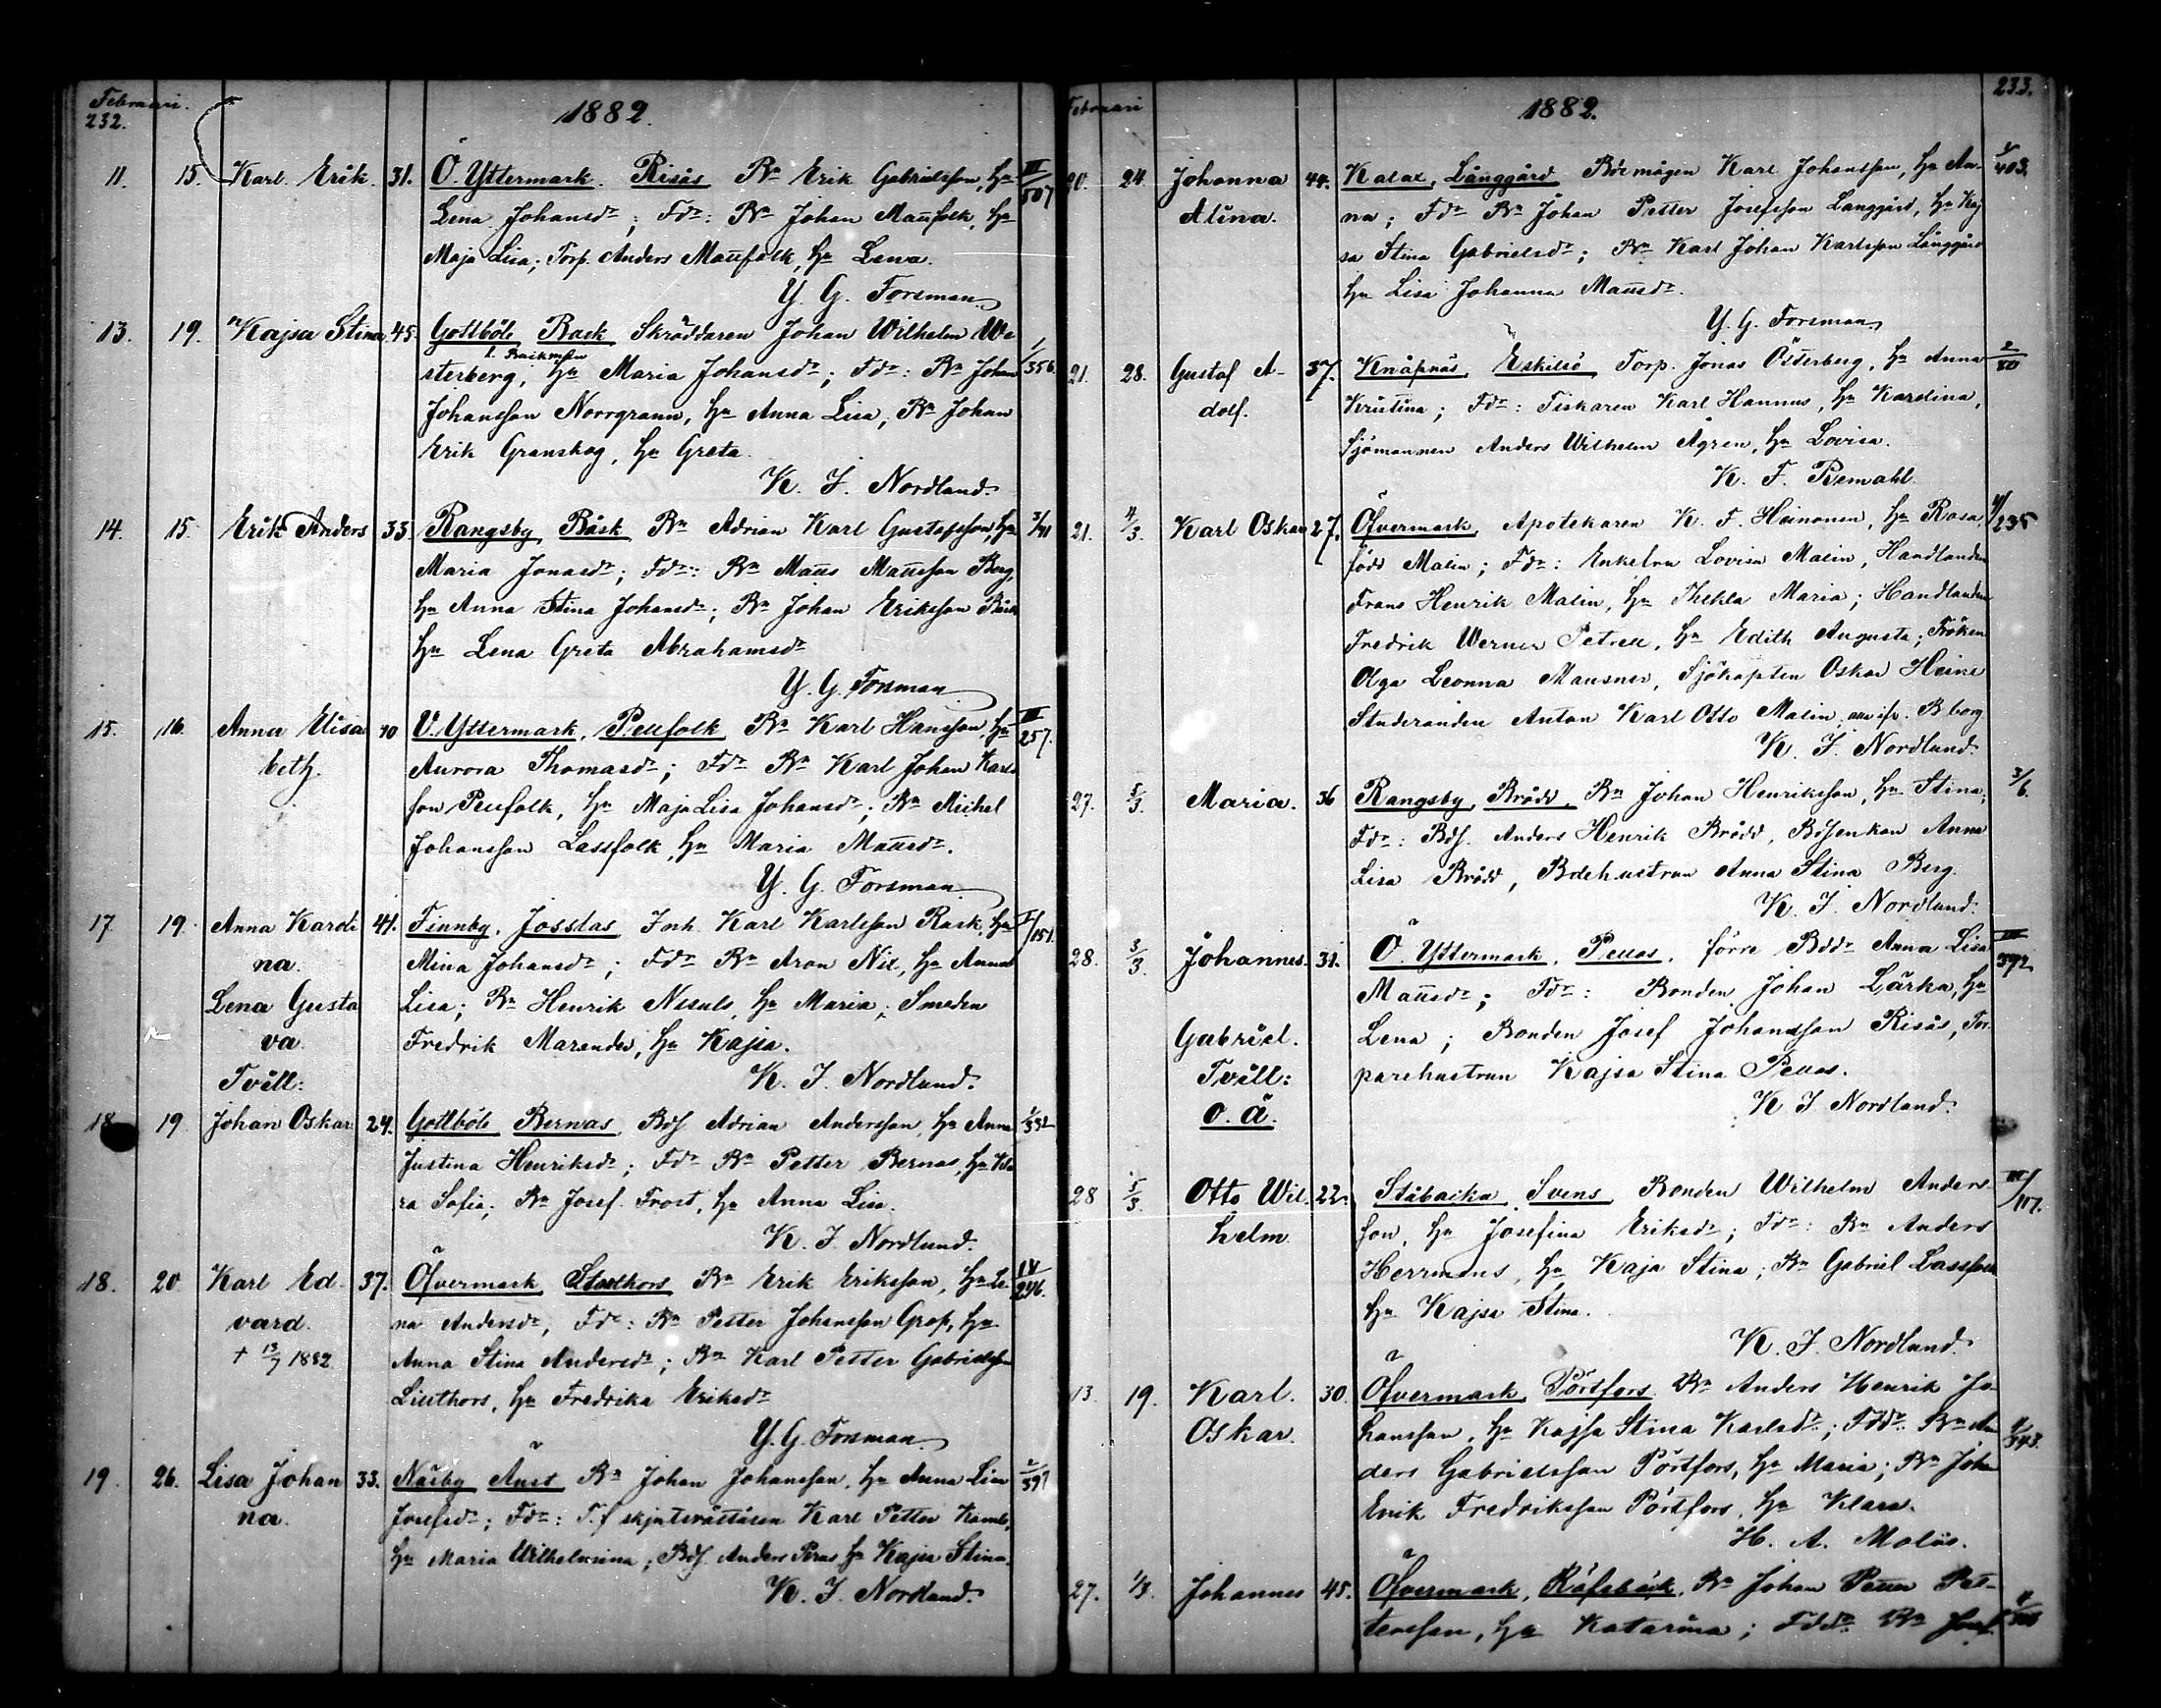 Februari.
232.
1882.
11. 15. Karl Erik. 31. Ö. Yttermark. Risås Bn Erik Gabrielsson, Hu III/507
Lena Johansdr; Fdr: Bn Johan Mannfolk, Hu
Maja Lisa; Torp. Anders Mannfolk, Hu Lena.
Y. G. Forsman
13. 19. Kajsa Stina 45. Gottböle Back Skräddaren Johan Wilhelm We
l. Backman
sterberg, Hu Maria Johansdr; Fdr: Bn Johan 1/356.
Johansson Norrgrann, Hu Anna Lisa, Bn Johan
Erik Granskog, Hu Greta.
K. J. Nordlund.
14. 15. Erik Anders 33 Rangsby Bäck Bn Adrian Karl Gustafsson, Hu 3/41
Maria Jonasdr; Fdr: Bn Manns Mannsson Berg,
Hu Anna Stina Johansdr; Bn Johan Eriksson Bäck
Hu Lena Greta Abrahamsdr
Y. G. Forsman
15. 16. Anna Elisa 40 Ö. Yttermark, Pellfolk Bn Karl Hansson, Hu III/257.
beth. Aurora Thomasdr; Fdr Bn Karl Johan Karls
son Pellfolk, Hu Maja Lisa Johansdr; Bn Michel
Johansson Lassfolk, Hu Maria Mannsdr.
Y. G. Forsman
17. 19. Anna Karoli 41. Finnby, Jossdas Inh. Karl Karlsson Rask, Hu I/151.
na. Mina Johansdr; Fdr Bn Aron Nix, Hu Anna
Lena Gusta Lisa; Bn Henrik Nissuls, Hu Maria; Smeden
va. Fredrik Marander, Hu Kajsa.
Tvill: K. J. Nordlund.
18 19 Johan Oskar 24. Gottböle Bernas, Bdf Adrian Andersson, Hu Anna 1/332
Justina Henriksdr; Fdr Bn Petter Bernas, Hu Kla
ra Sofia; Bn Josef Frost, Hu Anna Lisa.
K. J. Nordlund.
18. 20 Karl Ed- 37. Öfvermark Storthors Bn Erik Eriksson, Hu Le- IV/296.
vard. na Andersdr, Fdr: Bn Petter Johansson Grop, Hu
+ 13/7 1882 Anna Stina Andersdr; Bn Karl Petter Gabrielsson
Lillthors, Hu Fredrika Eriksdr
Y. G. Forsman
19. 26. Lisa Johan 33. Näsby Änst Bn Johan Johansson, Hu Anna Lisa 2/397
na. Josefsdr; Fdr: T. f skjutsrättaren Karl Petter Kamb,
Hu Maria Wilhelmina; Bdf. Anders Peras Hu Kajsa Stina.
K. J. Nordlund.
Februari
1882.
233.
20. 24. Johanna 44. Kalax, Långgård Bdemågen Karl Johansson, Hu An- 1/403.
Alina. na; Fdr Bn Johan Petter Josefsson Långgård, Hu Kaj
sa Stina Gabrielsdr; Bn Karl Johan Karlsson Långgård
Hu Lisa Johanna Mannsdr.
Y. G. Forsman
21. 28. Gustaf A- 37. Knåpnäs, Eskilsö Torp. Jonas Österberg, Hu Anna 2/80
dolf. Kristina; Fdr: Fiskaren Karl Hannus, Hu Karolina,
Sjömannen Anders Wilhelm Ågren, Hu Lovisa.
K. F. Remahl
21. 4/3. Karl Oskar 27. Öfvermark, Apotekaren K. F. Heinonen, Hu Rosa, 4/235
född Malin; Fdr: Enkefru Lovisa Malin, Handlanden
Frans Henrik Malin, Hu Thekla Maria; Handlanden
Fredrik Werner Petrell, Hu Edith Augusta; Fröken
Olga Leonna Mansner, Sjökapten Oskar Heine
Studeranden Anton Karl Otto Malin, B borg.
K. J. Nordlund.
27. 5/3. Maria. 36 Rangsby, Brådd, Bn Johan Henriksson, Hu Stina; 3/6.
Fdr: Bdf. Anders Henrik Brådd, Bdfenkan Anna
Lisa Brådd, Bdehustrun Anna Stina Berg.
K. J. Nordlund.
28. 3/3. Johannes. 31. Ö. Yttermark, Pellas, förre Bddr Anna Lisa III/392
Mannsdr; Fdr: Bonden Johan Lärka, Hu
Gabriel. Lena; Bonden Josef Johansson Risås, Tor-
Tvill: parehustrun Kajsa Stina Pellas.
o. ä. K. J. Nordlund.
28 5/3. Otto Wil- 22. Ståbacka, Svens, Bonden Wilhelm Anders- III/117.
helm son, Hu Josefina Eriksdr; Fdr: Bn Anders
Herrmans, Hu Kaja Stina; Bn Gabriel Lassfolk
Hu Kajsa Stina.
K. J. Nordlund.
13. 19. Karl. 30. Öfvermark, Pörtfors Bn Anders Henrik Jo-
Oskar. hansson, Hu Kajsa Stina Karlsdr; Fddr: Bn An 4/343.
ders Gabrielsson Pörtfors, Hu Maria; Bn Johan
Erik Fredriksson Pörtfors, Hu Klara.
H. A. Molüs.
27. 1/3. Johannes 45. Öfvermark, Räfsbäck, Bn Johan Petter Pet-
tersson, Hu Katarina; Fddr: Bn Josef